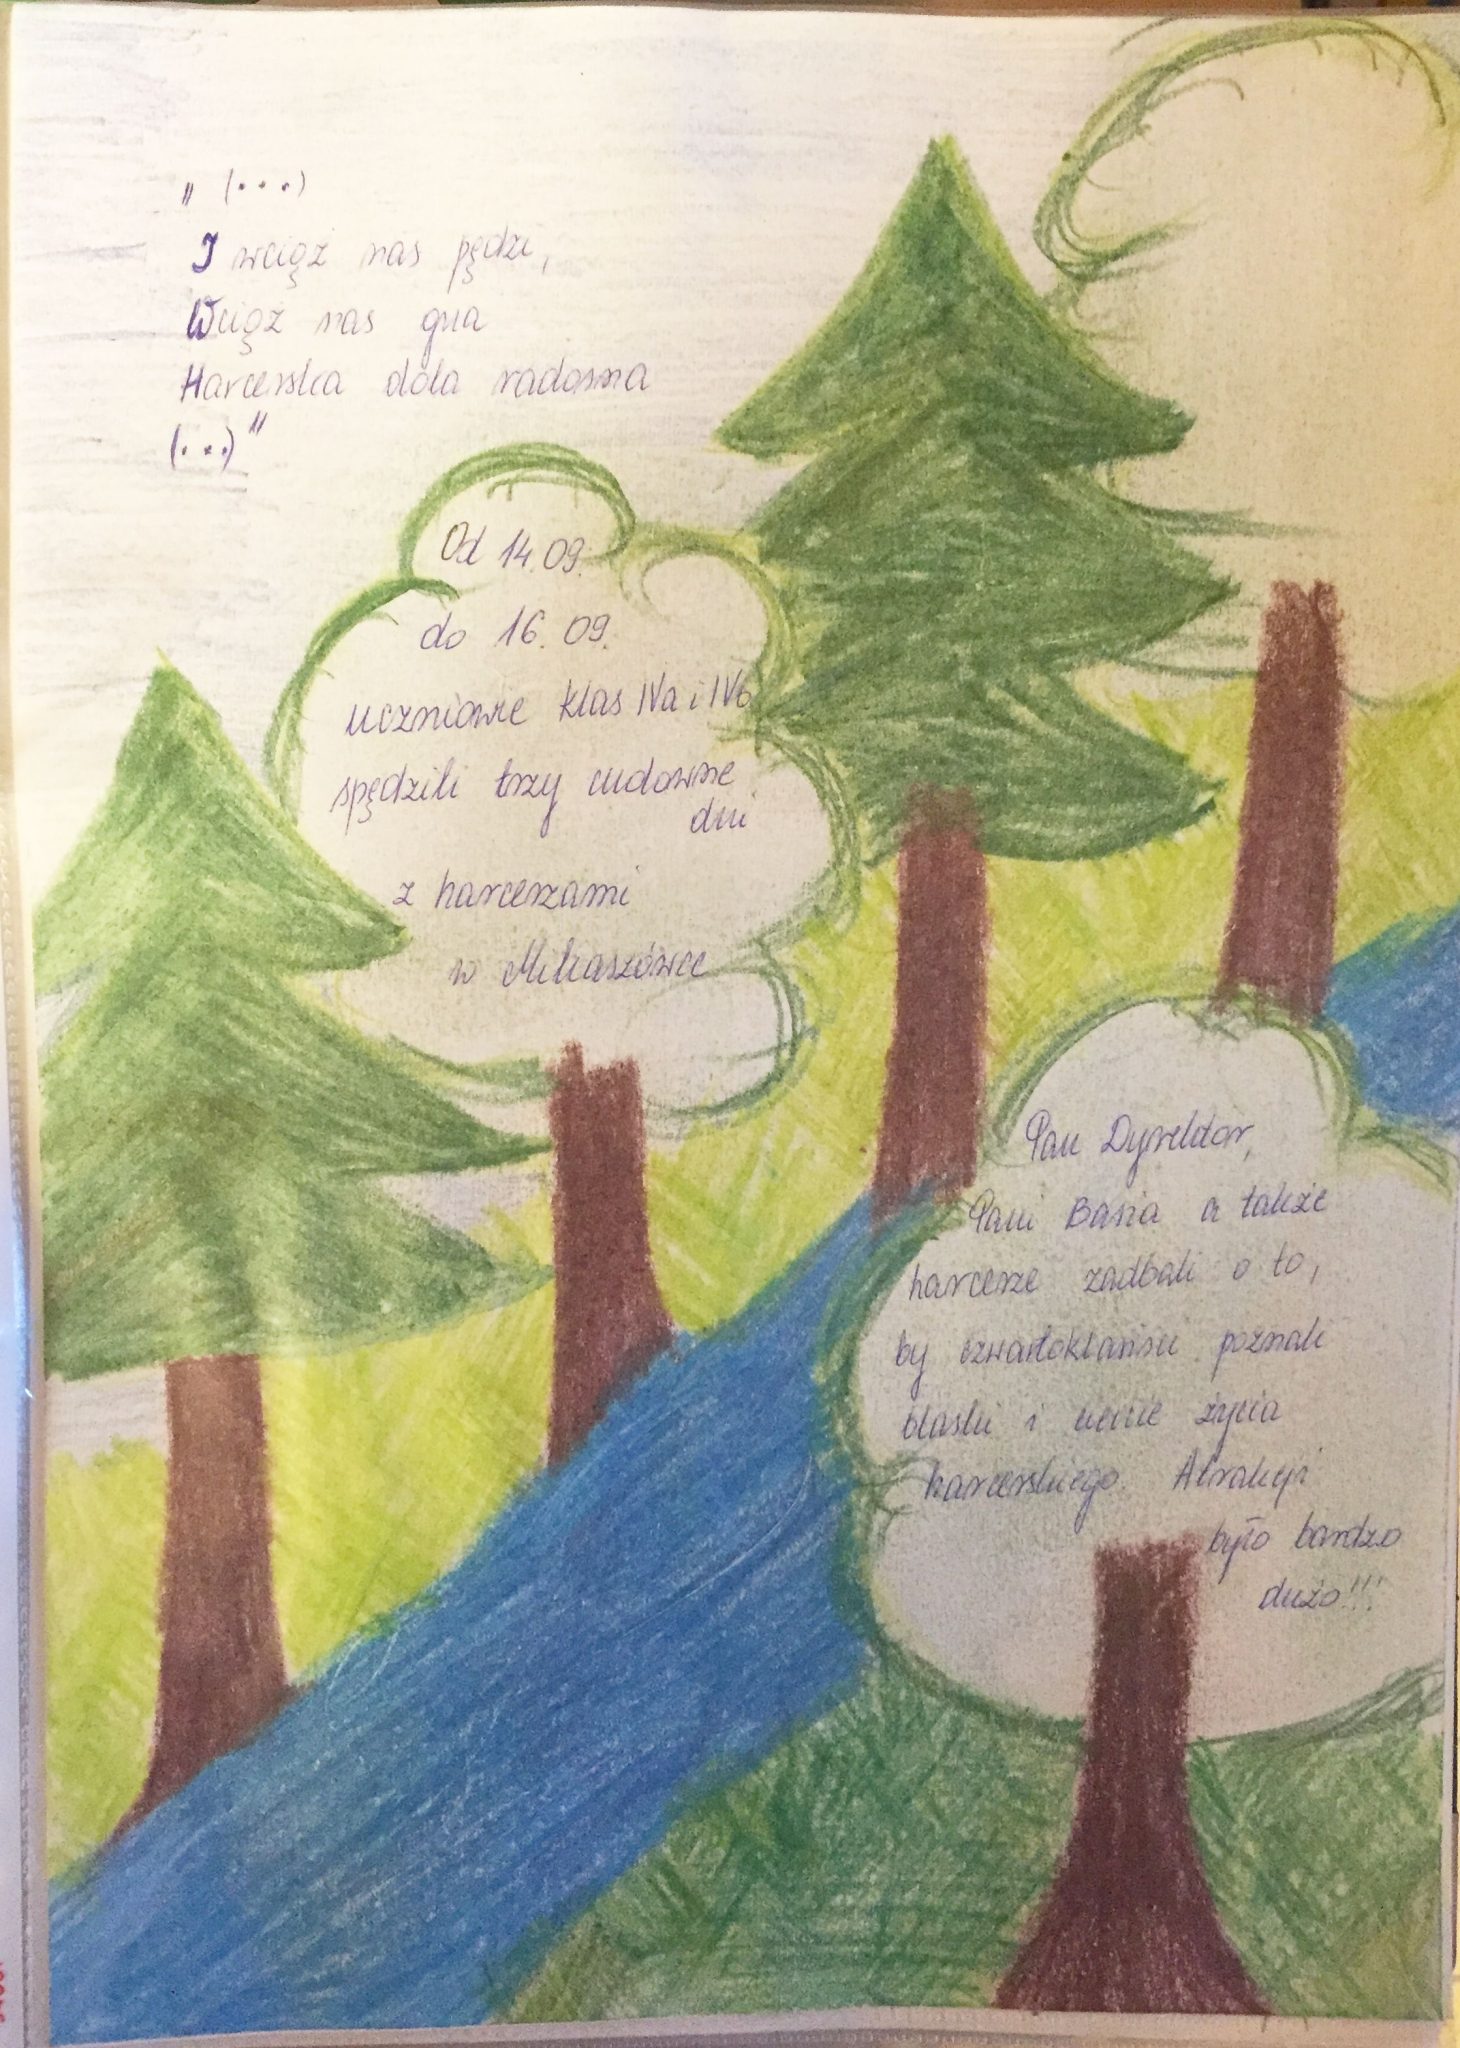 „ (...)
I wciąż nas pędzi,
Wciąż nas gna
Harcerska dola radosna
(...)"
Od 14.09.
do 16.09.
uczniowie klas IVa i IVb
spędzili trzy cudowne
dni
z harcerzami
w Mikaszówce
Pan Dyrektor,
Pani Basia a także
harcerze zadbali o to,
by czwartoklasiści poznali
blaski i cienie życia
harcerskiego. Atrakcji
było bardzo
dużo!!!